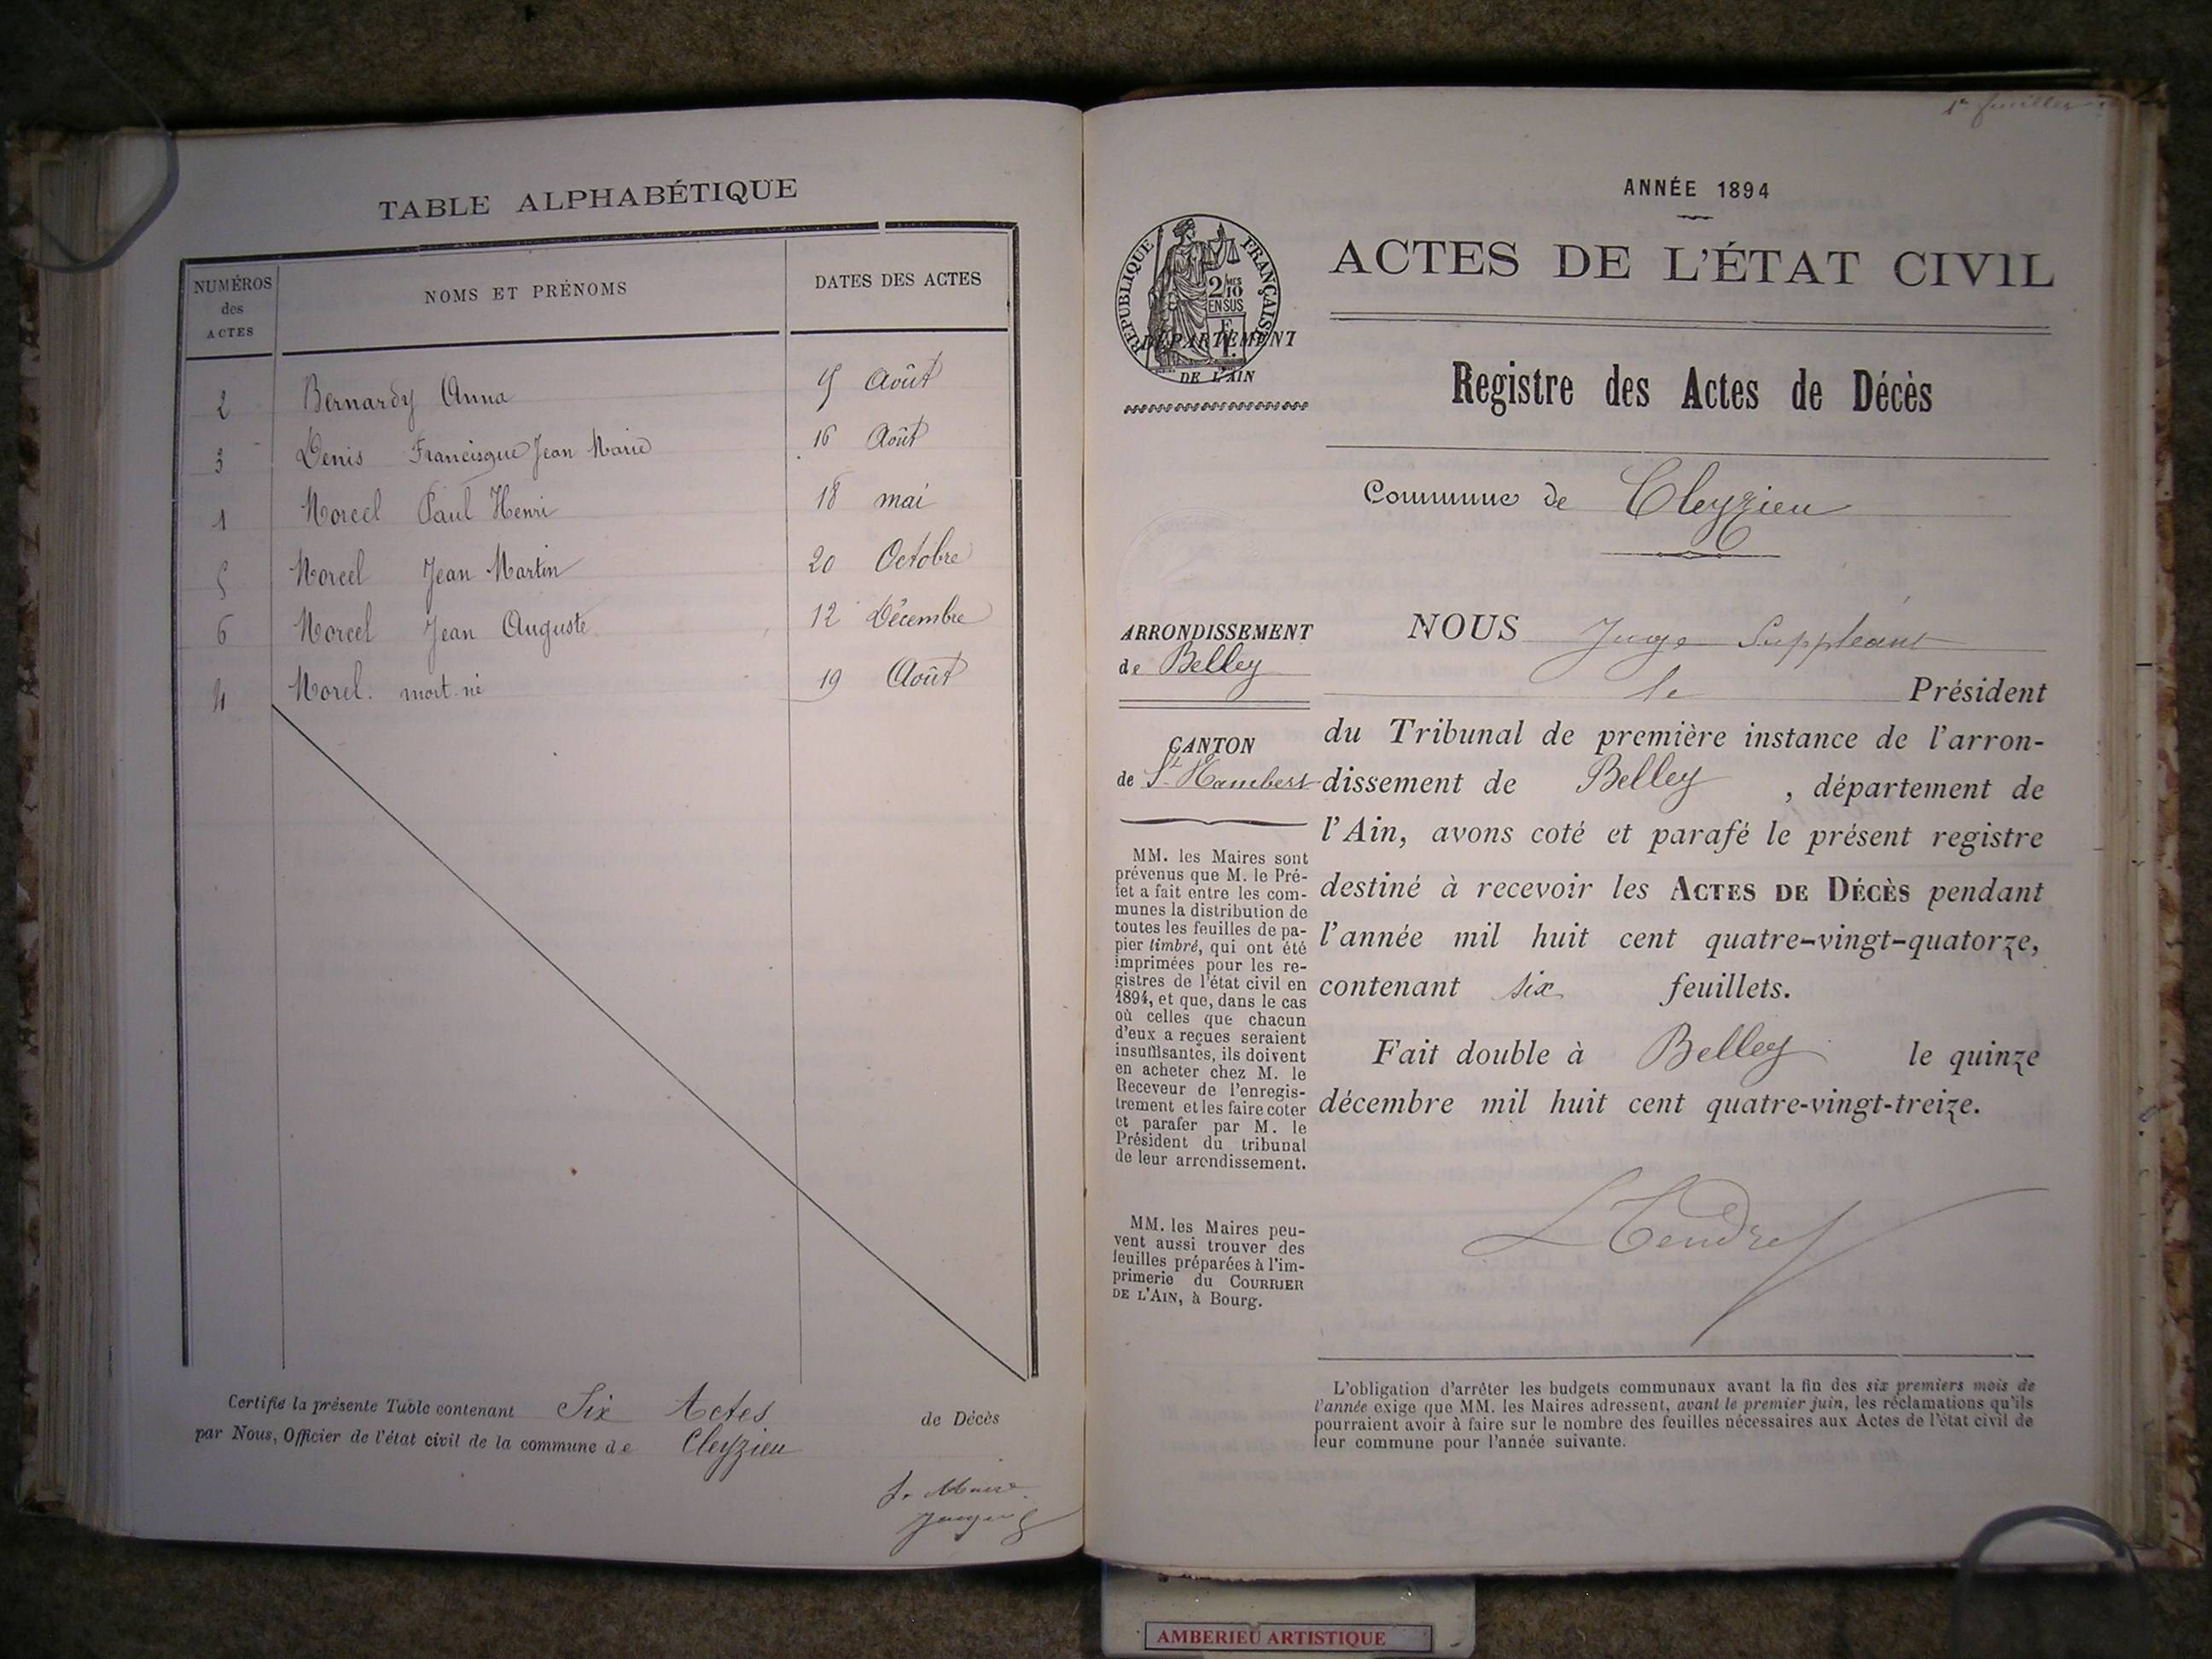 TABLE ALPHABÉTIQUE
NUMÉROS des ACTES
NOMS ET PRÉNOMS
DATES DES ACTES
2 Bernardy Anna 5 Août
3 Denis Francisque Jean Marie 16 Août
1 Morcel Paul Henri 18 mai
5 Morcel Jean Martin 20 Octobre
6 Morcel Jean Auguste 12 Décembre
4 Morel. mort-né 19 Août
Certifié la présente Table contenant Six Actes de Décès
par Nous, Officier de l'état civil de la commune de Cleyzieu
Le Maire
1er feuillet
ANNÉE 1894
RÉPUBLIQUE FRANÇAISE
2/10 MES
EN SUS
DÉPARTEMENT
DE L'AIN
ACTES DE L'ÉTAT CIVIL
Registre des Actes de Décès
Commune de Cleyzieu
ARRONDISSEMENT
de Belley
CANTON
de St Rambert
MM. les Maires sont
prévenus que M. le Pré-
fet a fait entre les com-
munes la distribution de
toutes les feuilles de pa-
pier timbré, qui ont été
imprimées pour les re-
gistres de l'état civil en
1894, et que, dans le cas
où celles que chacun
d'eux a reçues seraient
insuffisantes, ils doivent
en acheter chez M. le
Receveur de l'enregis-
trement et les faire coter
et parafer par M. le
Président du tribunal
de leur arrondissement.
MM. les Maires peu-
vent aussi trouver des
feuilles préparées à l'im-
primerie du COURRIER
DE L'AIN, à Bourg.
NOUS Juge Suppléant
le Président
du Tribunal de première instance de l'arron-
dissement de Belley, département de
l'Ain, avons coté et parafé le présent registre
destiné à recevoir les ACTES DE DÉCÈS pendant
l'année mil huit cent quatre-vingt-quatorze,
contenant six feuillets.
Fait double à Belley le quinze
décembre mil huit cent quatre-vingt-treize.
L Tendret
L'obligation d'arrêter les budgets communaux avant la fin des six premiers mois de
l'année exige que MM. les Maires adressent, avant le premier juin, les réclamations qu'ils
pourraient avoir à faire sur le nombre des feuilles nécessaires aux Actes de l'état civil de
leur commune pour l'année suivante.
AMBERIEU ARTISTIQUE